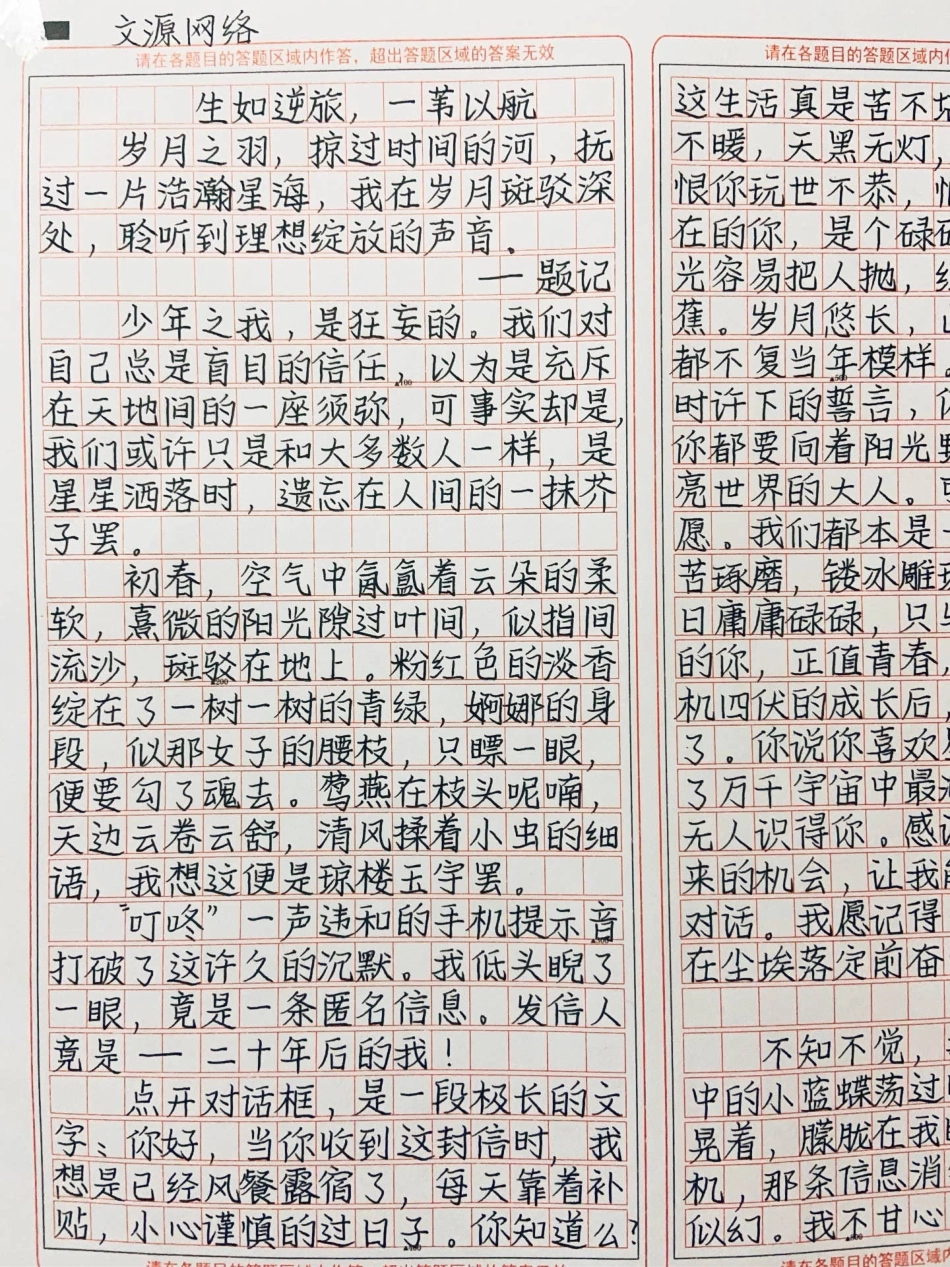 文源网络
请在各题目的答题区域内作答，超出答题区域的答案无效
生如逆旅，一苇以航
岁月之羽，掠过时间的河，抚
过一片浩瀚星海，我在岁月斑驳深
处，聆听到理想绽放的声音．
—题记
少年之我，是狂妄的。我们对
自己总是盲目的信任，以为是充斥
▲100
在天地间的一座须弥，可事实却是，
我们或许只是和大多数人一样，是
星星洒落时，遗忘在人间的一抹芥
子罢。
初春，空气中氤氲着云朵的柔
软，熹微的阳光隙过叶间，似指间
流沙，斑驳在地上。粉红色的淡香
▲200
绽在了一树一树的青绿，婀娜的身
段，似那女子的腰枝，只瞟一眼，
便要勾了魂去。莺燕在枝头呢喃，
天边云卷云舒，清风揉着小虫的细
语，我想这便是琼楼玉宇罢。
“叮咚”一声违和的手机提示音
▲300
打破了这许久的沉默。我低头睨了
一眼，竟是一条匿名信息。发信人
竟是—二十年后的我！
点开对话框，是一段极长的文
字：你好，当你收到这封信时，我
想是已经风餐露宿了，每天靠着补
贴，小心谨慎的过日子。你知道么？
▲400
请在各题目的答题区域内
这生活真是苦不
不暖，天黑无灯，
恨你玩世不恭，
在的你，是个碌
光容易把人抛，
蕉。岁月悠长，
都不复当年模样。
时许下的誓言，
你都要向着阳光
亮世界的大人。
愿。我们都本是
苦琢磨，镂冰雕
日庸庸碌碌，只
的你，正值青春
机四伏的成长后，
了。你说你喜欢
了万千宇宙中最
无人识得你。感
来的机会，让我
对话。我愿记得
在尘埃落定前奋
不知不觉，
中的小蓝蝶荡过
晃着，朦胧在我
机，那条信息消
似幻。我不甘心
请在各题目的答题区域内